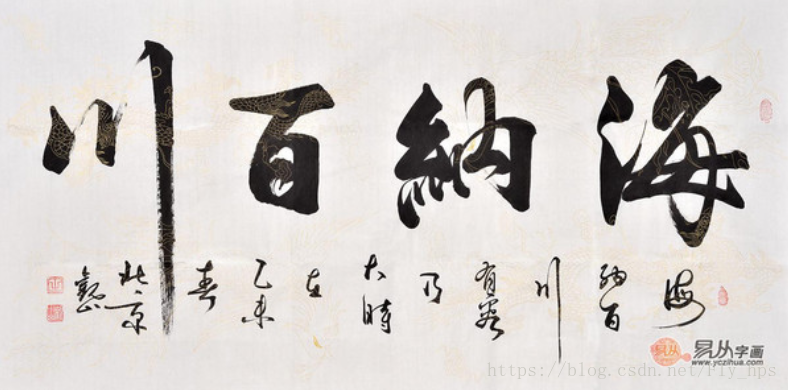 海納百川
海納百川有容乃大時在乙未春北京
易从
易从字画
www.yczihua.com
https://blog.csdn.net/Fly_hps